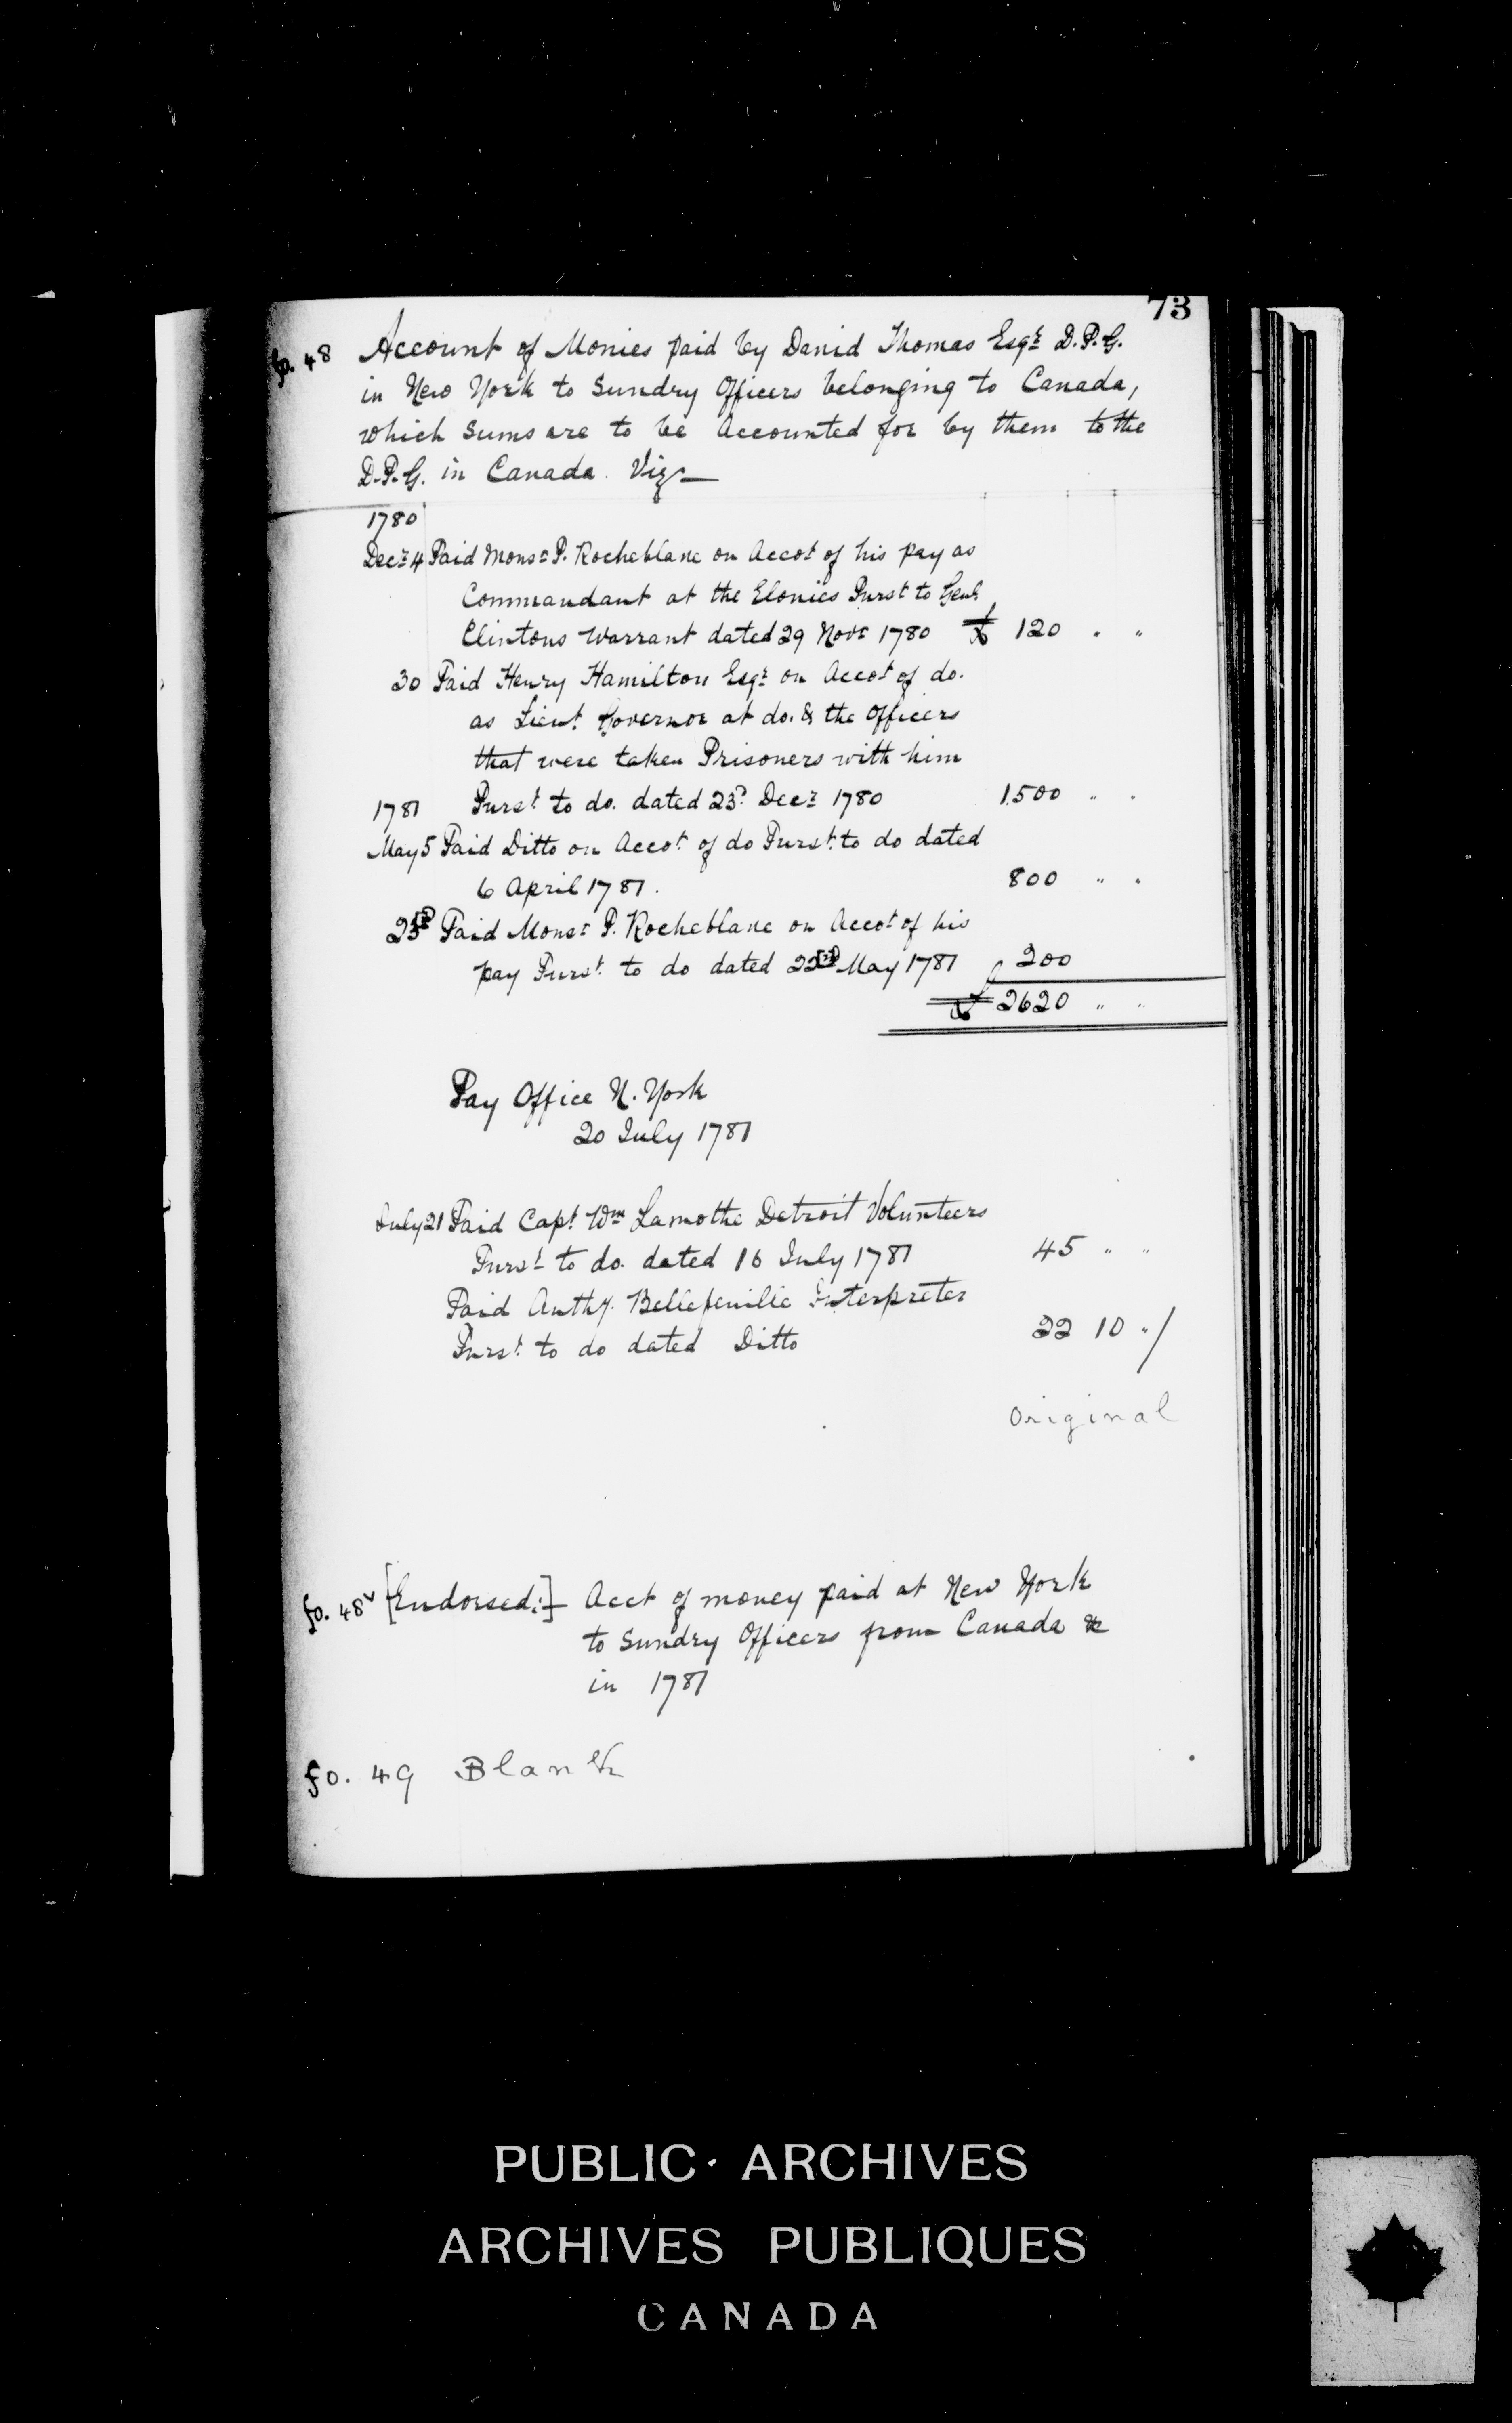 73
fo. 48 Account of Monies paid by David Thomas Esqr. D.P.G.
in New York to Sundry Officers belonging to Canada,
which Sums are to be Accounted for by them to the
D.P.G. in Canada. Vizt—
1780
Decr 4 Paid Monsr P. Rocheblane on Accot of his pay as
Commandant at the Elonies Purst to Genl.
Clintons Warrant dated 29 Novr 1780 £ 120 " "
30 Paid Henry Hamilton Esqr on Accot of do.
as Lieut Governor at do. & the Officers
that were taken Prisoners with him
1781 Purst to do. dated 23d Decr 1780 1500 " "
May 5 Paid Ditto on Accot of do Purst to do dated
6 April 1781. 800 " "
23[d] Paid Monsr P. Rocheblane on Accot of his
pay Purst to do dated 22[d] May 1781 200
£ 2620 " "
Pay Office N. York
20 July 1781
July 21 Paid Capt Wm Lamothe Detroit Volunteers
Purst to do. dated 16 July 1781 45 " "
Paid Anthy. Bellefeuille Interpreter
Purst to do dated Ditto 22 10 " /
Original
fo. 48v [Endorsed:]— Acct of money paid at New York
to Sundry Officers from Canada &c
in 1781
fo. 49 Blank
PUBLIC ARCHIVES
ARCHIVES PUBLIQUES
CANADA